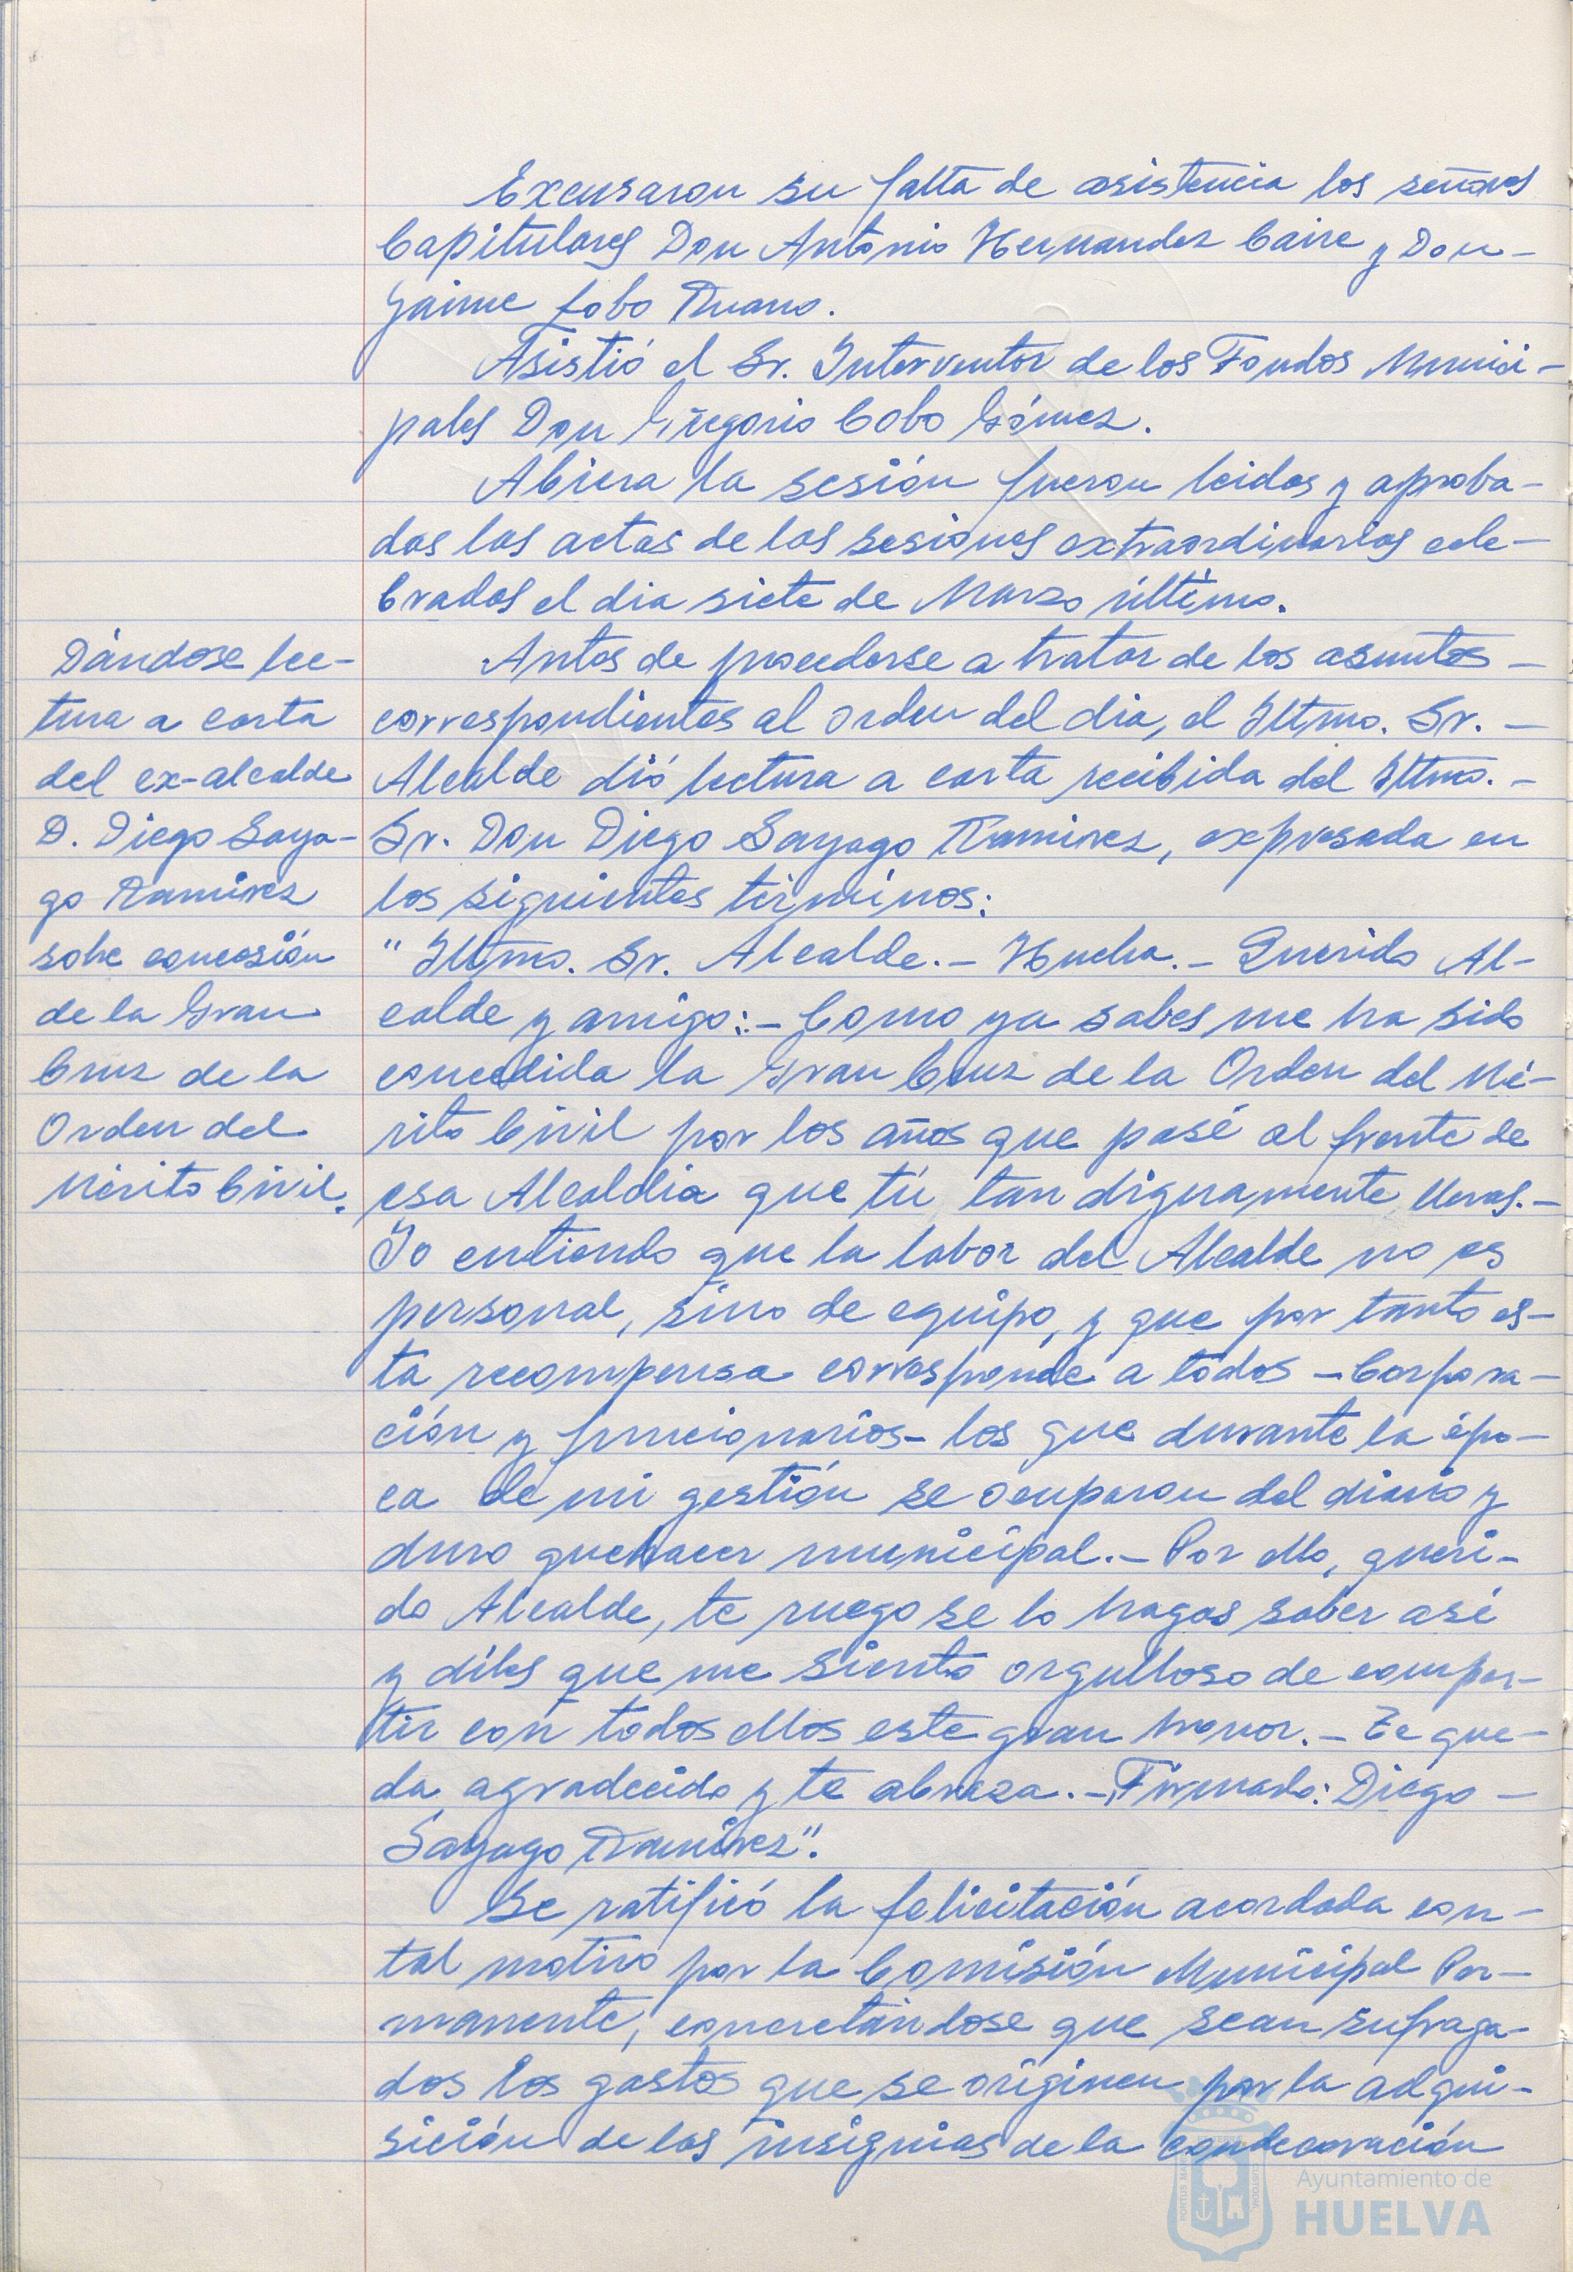 Excusaron su falta de asistencia los señores
Capitulares Don Antonio Hernandez Caire y Don-
Jaime Lobo Ruano.
Asistió el Sr. Interventor de los Fondos Munici-
pales Don Gregorio Cobo Gómez.
Abiera la sesión fueron leidas y aproba-
das las actas de las sesiones extraordinarias cele-
bradas el dia siete de Marzo último.
Dándose lec-
tura a carta
del ex-alcalde
D. Diego Saya-
go Ramirez
sobe concesión
de la Gran
Cruz de la
Orden del
Mérito Civil.
Antes de procederse a tratar de los asuntos -
correspondientes al orden del dia, el Iltmo. Sr. -
Alcalde dió lectura a carta recibida del Iltmo. -
Sr. Don Diego Sayago Ramirez, expresada en
los siguientes términos:
"Iltmo. Sr. Alcalde.- Huelva.- Querido Al-
calde y amigo:- Como ya sabes me ha sido
concedida la Gran Cruz de la Orden del Mé-
rito Civil por los años que pasé al frente de
esa Alcaldia que tú tan dignamente llevas.-
Yo entiendo que la labor del Alcalde no es
personal, sino de equipo, y que por tanto es-
ta recompensa corresponde a todos -Corpora-
ción y funcionarios- los que durante la épo-
ca de mi gestión se ocuparon del diario y
duro quehacer municipal.- Por ello, queri-
do Alcalde, te ruego se lo hagas saber asi
y diles que me siento orgulloso de compar-
tir con todos ellos este gran honor.- Te que-
da agradecido y te abraza.- Firmado: Diego -
Sayago Ramirez".
Se ratificó la felicitación acordada con-
tal motivo por la Comisión Municipal Per-
manente, concretándose que sean sufraga-
dos los gastos que se originen por la adqui-
sición de las insignias de la condecoración
Ayuntamiento de
HUELVA